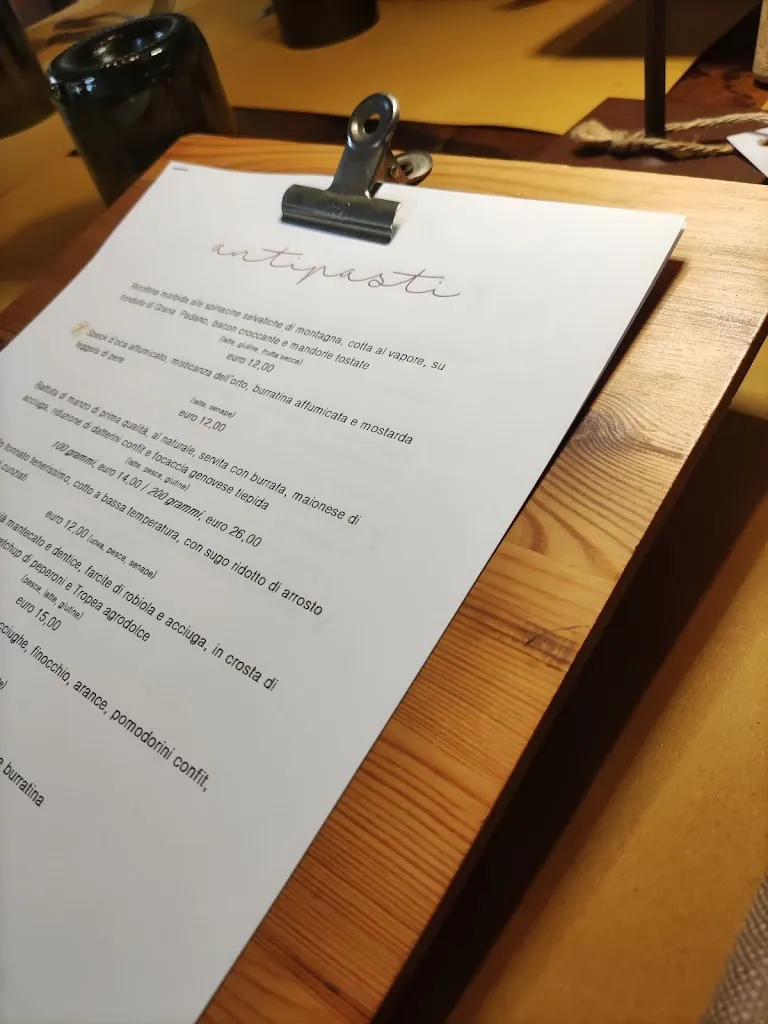 antipasti
Ricottina morbida alle spinacine selvatiche di montagna, cotta al vapore, su
fonduta di Grana Padano, bacon croccante e mandorle tostate
(latte, glutine, frutta secca)
euro 12,00
Speck d'oca affumicato, misticanza dell'orto, burratina affumicata e mostarda
leggera di pere
(latte, senape)
euro 12,00
Battuta di manzo di prima qualità, al naturale, servita con burrata, maionese di
acciuga, riduzione di datterini confit e focaccia genovese tiepida
(latte, pesce, glutine)
100 grammi, euro 14,00 / 200 grammi, euro 26,00
tonnato tenerissimo, cotto a bassa temperatura, con sugo ridotto di arrosto
euro 12,00 (uova, pesce, senape)
mantecato e dentice, farcite di robiola e acciuga, in crosta di
ketchup di peperoni e Tropea agrodolce
(pesce, latte, glutine)
euro 15,00
finocchio, arance, pomodorini confit,
burratina